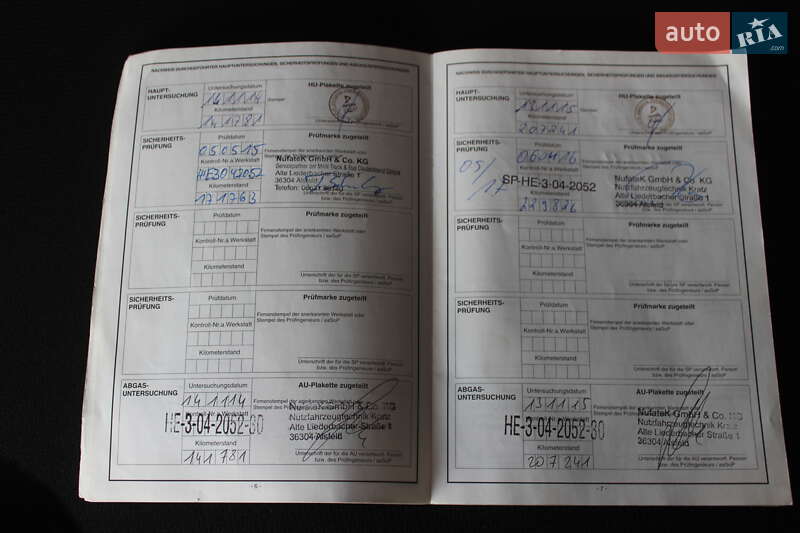 auto RIA .com
NACHWEIS DURCHGEFÜHRTER HAUPTUNTERSUCHUNGEN, SICHERHEITSPRÜFUNGEN UND ABGASUNTERSUCHUNGEN
HAUPT-
UNTERSUCHUNG
Untersuchungsdatum
Kilometerstand
141781
HU-Plakette zugeteilt
SICHERHEITS-
PRÜFUNG
Prüfdatum
050515
Kontroll-Nr.a.Werkstatt
HE3042052
Kilometerstand
Prüfmarke zugeteilt
NufateK GmbH & Co. KG
Alte Liederbacher Straße 1
36304 Alsfeld
SICHERHEITS-
PRÜFUNG
Prüfdatum
Kontroll-Nr.a.Werkstatt
Kilometerstand
Prüfmarke zugeteilt
Firmenstempel der anerkannten Werkstatt oder
Stempel des Prüfingenieurs / aaSoP
Unterschrift der für die SP verantwortl. Person
bzw. des Prüfingenieurs / aaSoP
SICHERHEITS-
PRÜFUNG
Prüfdatum
Kontroll-Nr.a.Werkstatt
Kilometerstand
Prüfmarke zugeteilt
Firmenstempel der anerkannten Werkstatt oder
Stempel des Prüfingenieurs / aaSoP
Unterschrift der für die SP verantwortl. Person
bzw. des Prüfingenieurs / aaSoP
ABGAS-
UNTERSUCHUNG
Untersuchungsdatum
141114
HE-3-04-2052-30
Kilometerstand
141781
AU-Plakette zugeteilt
NufateK GmbH & Co. KG
Nutzfahrzeugtechnik Kratz
Alte Liederbacher Straße 1
36304 Alsfeld
Unterschrift der für die AU verantwortl. Person
bzw. des Prüfingenieurs / aaSoP
- 6 -
NACHWEIS DURCHGEFÜHRTER HAUPTUNTERSUCHUNGEN, SICHERHEITSPRÜFUNGEN UND ABGASUNTERSUCHUNGEN
HAUPT-
UNTERSUCHUNG
Untersuchungsdatum
131115
Kilometerstand
207241
HU-Plakette zugeteilt
SICHERHEITS-
PRÜFUNG
05/17
Prüfdatum
060416
SP-HE-3-04-2052
Kilometerstand
229826
Prüfmarke zugeteilt
NufateK GmbH & Co. KG
Nutzfahrzeugtechnik Kratz
Alte Liederbacher Straße 1
36304 Alsfeld
SICHERHEITS-
PRÜFUNG
Prüfdatum
Kontroll-Nr.a.Werkstatt
Kilometerstand
Prüfmarke zugeteilt
Firmenstempel der anerkannten Werkstatt oder
Stempel des Prüfingenieurs / aaSoP
Unterschrift der für die SP verantwortl. Person
bzw. des Prüfingenieurs / aaSoP
SICHERHEITS-
PRÜFUNG
Prüfdatum
Kontroll-Nr.a.Werkstatt
Kilometerstand
Prüfmarke zugeteilt
Firmenstempel der anerkannten Werkstatt oder
Stempel des Prüfingenieurs / aaSoP
Unterschrift der für die SP verantwortl. Person
bzw. des Prüfingenieurs / aaSoP
ABGAS-
UNTERSUCHUNG
Untersuchungsdatum
131115
HE-3-04-2052-30
Kilometerstand
207241
AU-Plakette zugeteilt
NufateK GmbH & Co. KG
Nutzfahrzeugtechnik Kratz
Alte Liederbacher Straße 1
36304 Alsfeld
Unterschrift der für die AU verantwortl. Person
bzw. des Prüfingenieurs / aaSoP
- 7 -